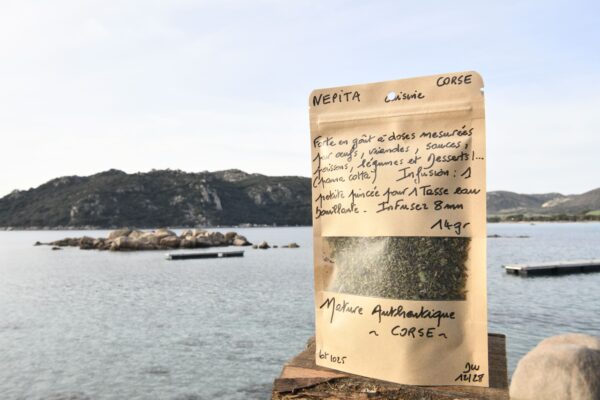 NEPITA cuisine CORSE
Forte en goût à doses mesurées
pour œufs, viandes, sauces,
poissons, légumes et Desserts!...
(panna cotta) Infusion : 1
petite pincée pour 1 Tasse eau
bouillante. Infusez 8mn
14gr
Nature Authentique
~ CORSE ~
lot 1025
12/28